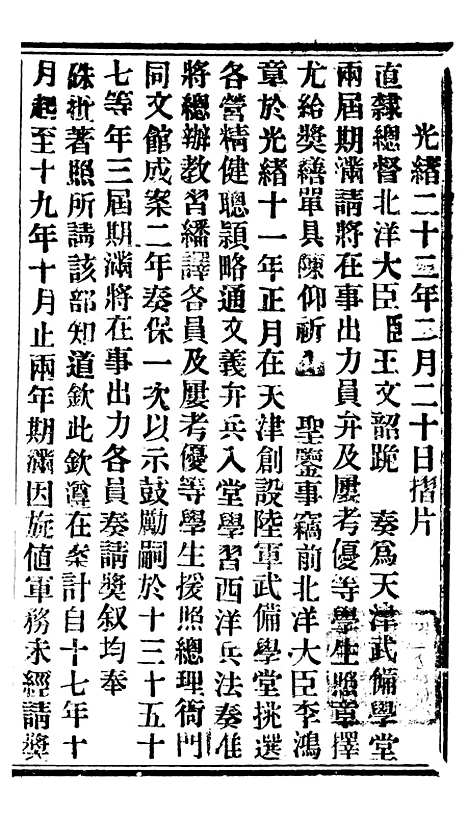 光緒二十三年二月二十日摺片
直隸總督北洋大臣臣王文韶跪 奏爲天津武備學堂
兩屆期滿請將在事出力員弁及屢考優等學生照章擇
尤給獎繕單具陳仰祈 聖鑒事竊前北洋大臣李鴻
章於光緒十一年正月在天津創設陸軍武備學堂挑選
各營精健聰穎略通文義弁兵入堂學習西洋兵法奏准
將總辦教習繙譯各員及屢考優等學生援照總理衙門
同文館成案二年奏保一次以示鼓勵嗣於十三十五十
七等年三屆期滿將在事出力各員奏請獎叙均奉
硃批著照所請該部知道欽此欽遵在案計自十七年十
月起至十九年十月止兩年期滿因旋値軍務未經請獎